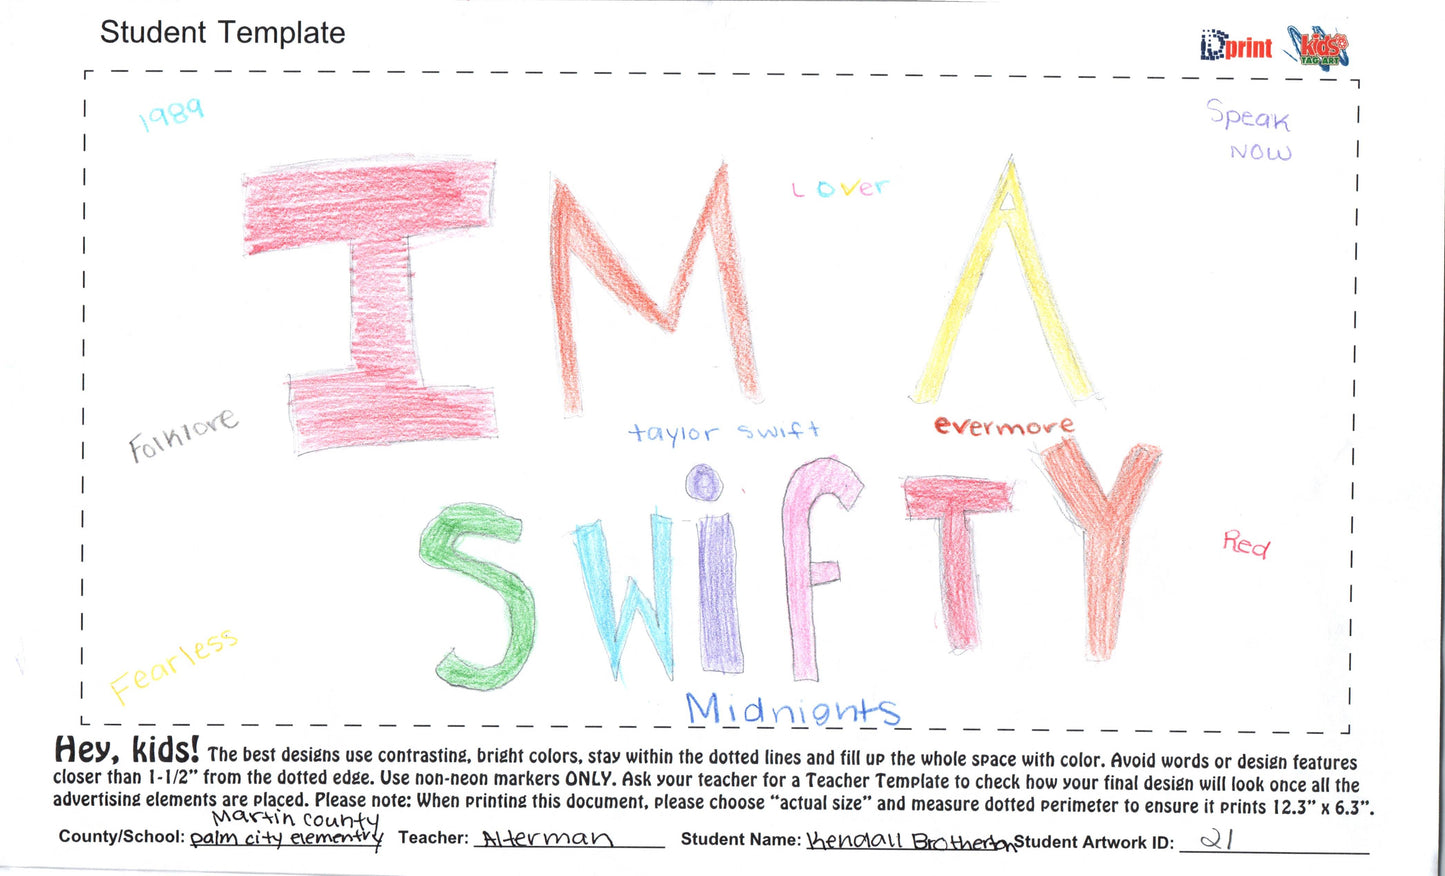 Student Template
IDprint
kids
TAG ART
1989
Speak
NOW
Lover
IM A
Folklore
taylor swift
evermore
SWiFTY
Red
Fearless
Midnights
Hey, kids! The best designs use contrasting, bright colors, stay within the dotted lines and fill up the whole space with color. Avoid words or design features
closer than 1-1/2" from the dotted edge. Use non-neon markers ONLY. Ask your teacher for a Teacher Template to check how your final design will look once all the
advertising elements are placed. Please note: When printing this document, please choose "actual size" and measure dotted perimeter to ensure it prints 12.3" x 6.3".
Martin county
County/School: palm city elementry Teacher: Alterman Student Name: Kendall Brotherton Student Artwork ID: 21